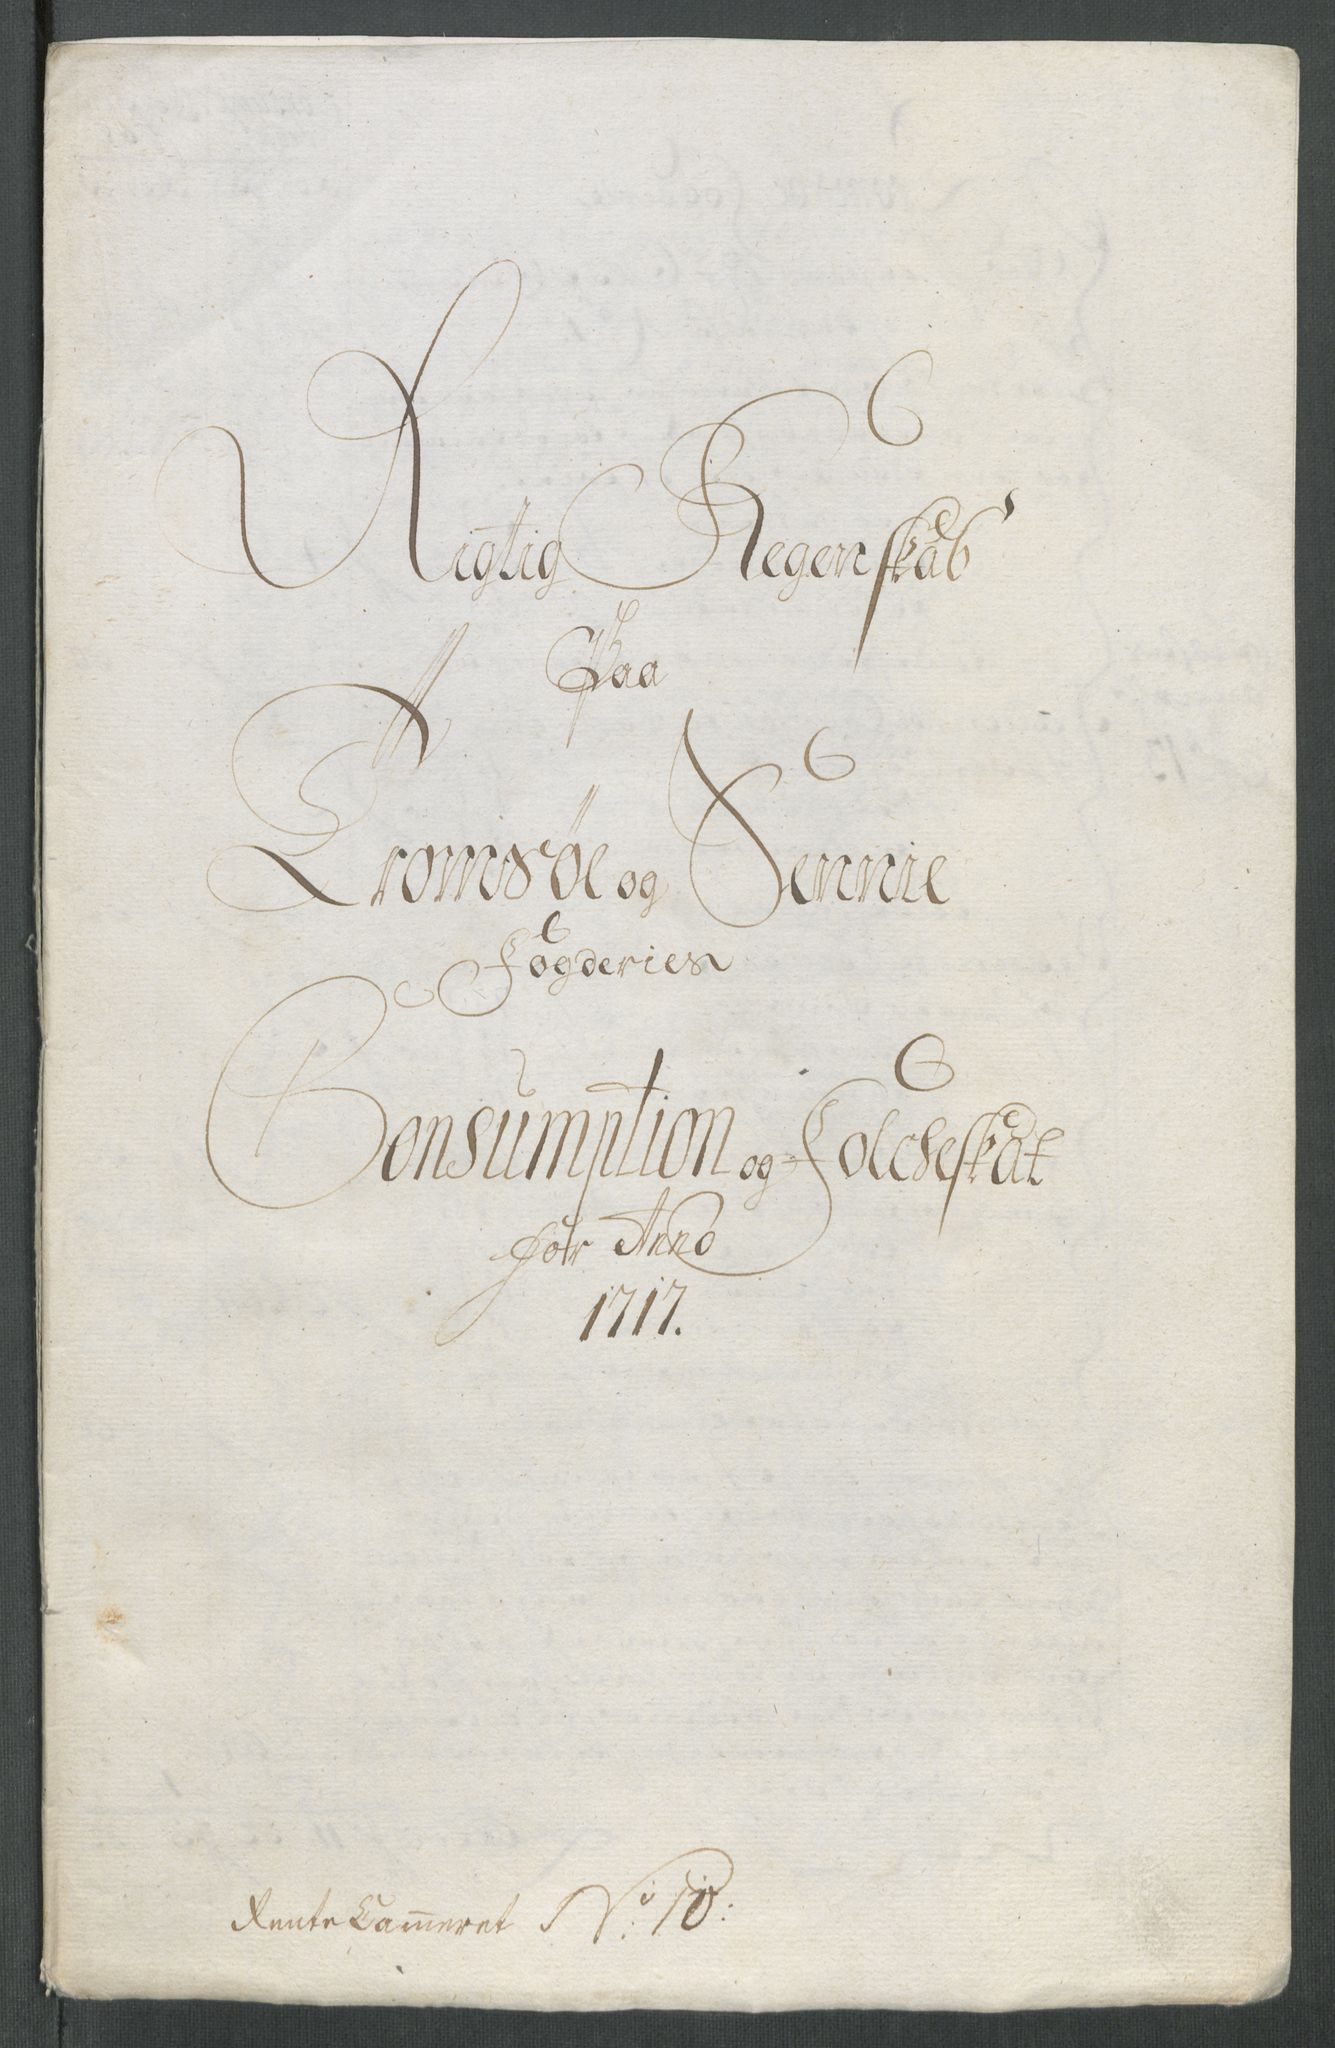 Rigtig Regenskab
Paa
Tromsöe og Sennie
Fogderies
Consumption og Folcheskat
for Anno
1717.
Rente Cam̄eret No: 10: